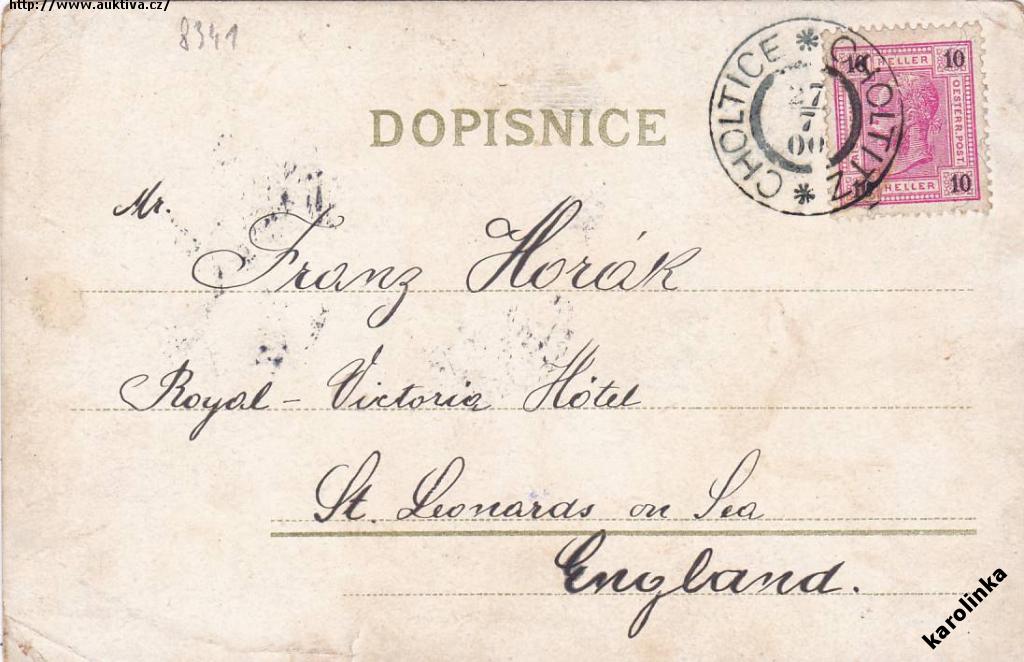 http://www.auktiva.cz/
8341
DOPISNICE
CHOLTICE * CHOLTITZ *
27
7
00
10 HELLER 10
OESTERR. POST.
10 HELLER 10
Mr.
Franz Horák
Royal - Victoria Hótel
St. Leonards on Sea
England.
karolinka